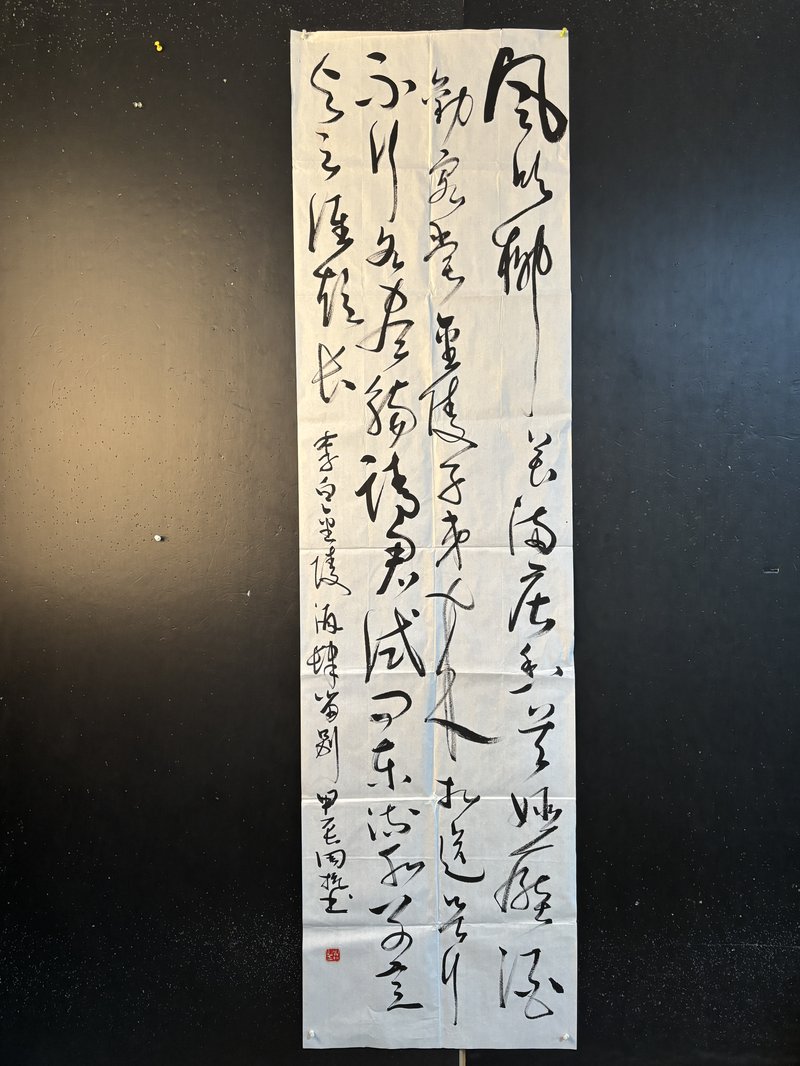 風吹柳花滿店香吳姬壓酒
勸客嘗金陵子弟來相送欲行
不行各盡觴請君試問東流水別意
與之誰短長 李白金陵酒肆留別 甲辰周書